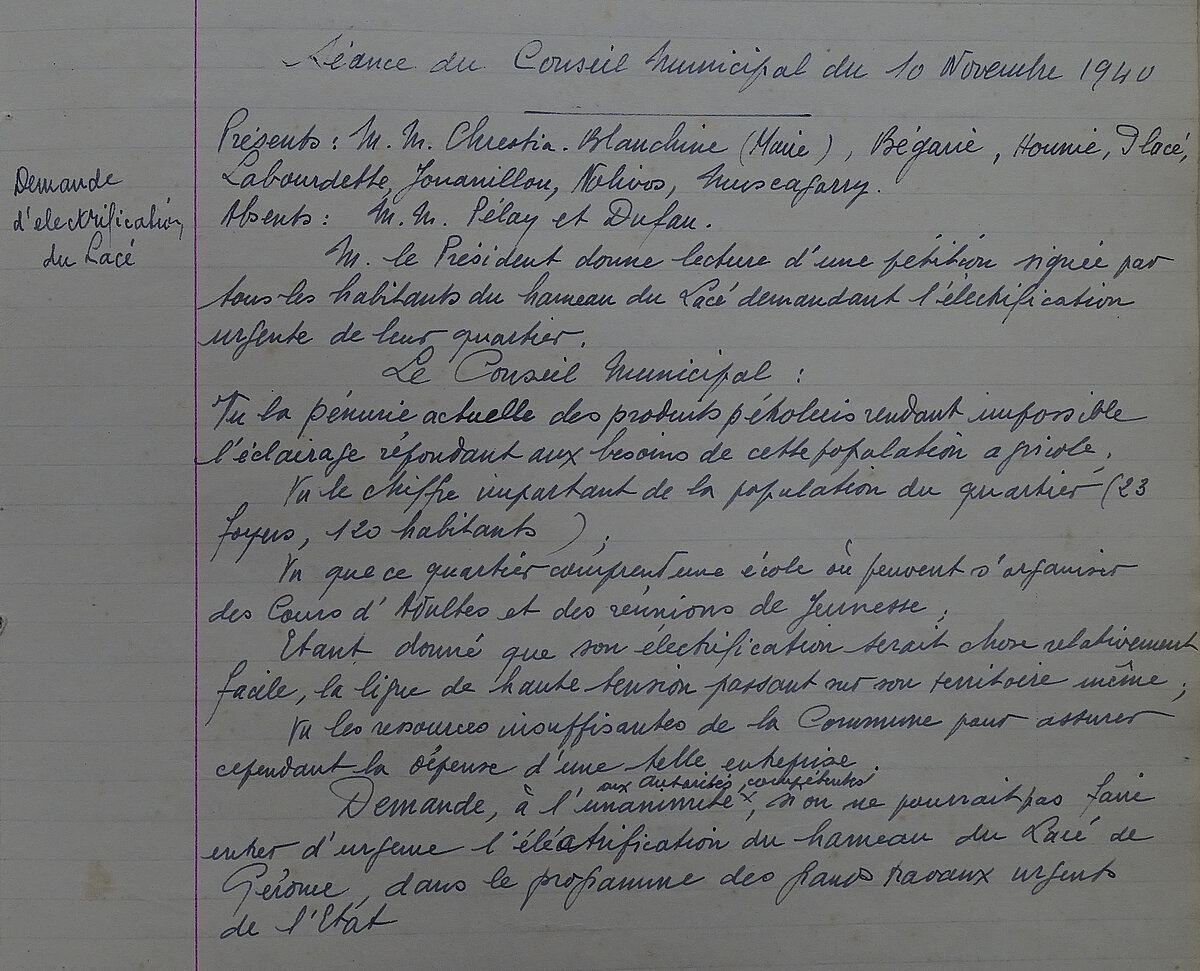 Séance du Conseil Municipal du 10 Novembre 1940
Présents : M. M. Chrestia-Blanchine (Maire), Bégarie, Hounie, Placé,
Labourdette, Jouanillou, Nolivos, Muscagorry.
Absents : M. M. Pélay et Dufau.
Demande
d'electrification
du Lacé
M. le Président donne lecture d'une pétition signée par
tous les habitants du hameau du Lacé demandant l'électrification
urgente de leur quartier.
Le Conseil Municipal :
Vu la pénurie actuelle des produits pétroliers rendant impossible
l'éclairage répondant aux besoins de cette population agricole.
Vu le chiffre important de la population du quartier (23
foyers, 120 habitants ) ;
Vu que ce quartier comprend une école où peuvent s'organiser
des Cours d'Adultes et des réunions de Jeunesse ;
Etant donné que son électrification serait chose relativement
facile, la ligne de haute tension passant sur son territoire même ;
Vu les ressources insuffisantes de la Commune pour assurer
cependant la dépense d'une telle entreprise
aux autorités compétentes
Demande, à l'unanimité x, si on ne pourrait pas faire
entrer d'urgence l'électrification du hameau du Lacé de
Gérome, dans le programme des grands travaux urgents
de l'Etat